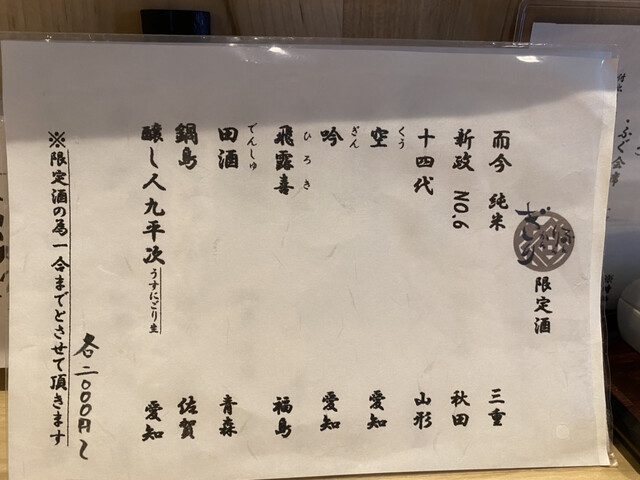 限定酒
而今 純米 三重
新政 NO.6 秋田
十四代 山形
空 くう 愛知
吟 ぎん 愛知
飛露喜 ひろき 福島
田酒 でんしゅ 青森
鍋島 佐賀
醸し人九平次 うすにごり生 愛知
各二〇〇〇円〜
※限定酒の為一合までとさせて頂きます